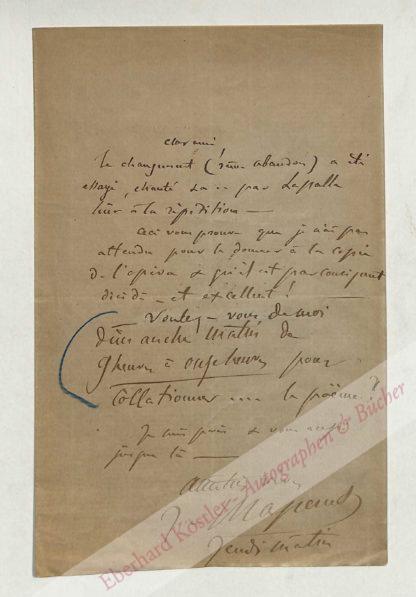 cher ami,
Le changement (sans abandon) a été
essayé, chanté &a .. par Lassalle
hier à la répétition —
Ceci vous prouve que je n'ai pas
attendu pour le donner à la copie
de l'opéra & qu'il est par conséquent
décidé — et excellent !
— Voulez-vous de moi
Dimanche matin de
9 heures à onze heures pour
collationner .... le poëme ?
Je suis pris & vous
jusque là —
J. Massenet
Jeudi matin
Eberhard Köstler - Autographen & Bücher